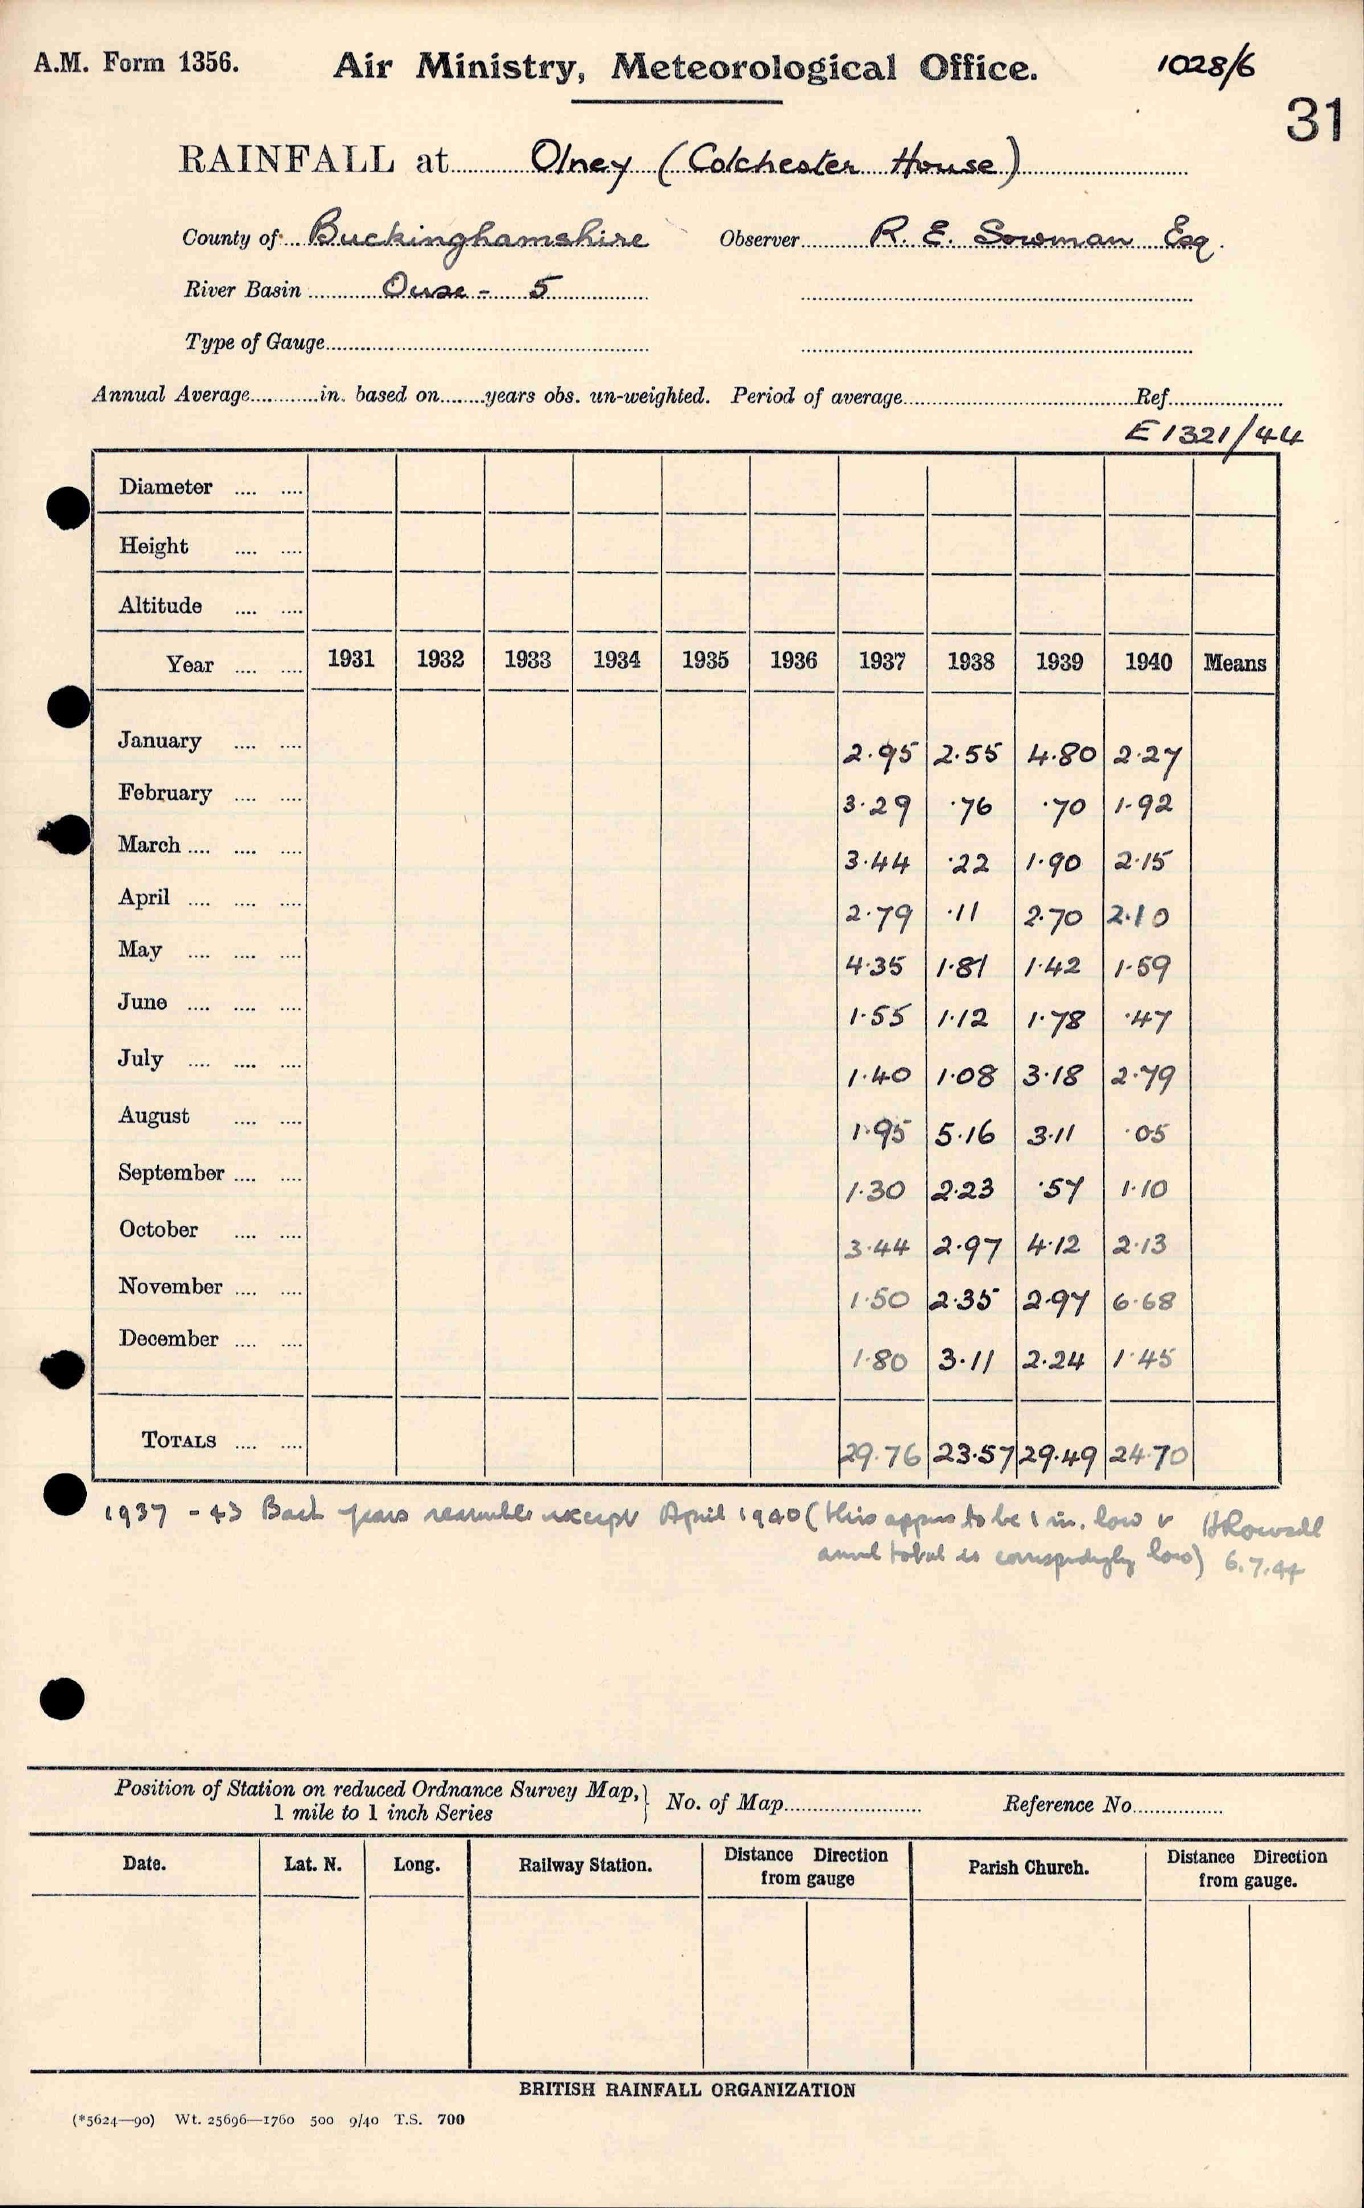 A.M. Form 1356. Air Ministry, Meteorological Office. 1028/6
31
RAINFALL at Olney (Colchester House)
County of Buckinghamshire Observer R. E. Sowman Esq.
River Basin Ouse - 5
Type of Gauge
Annual Average in. based on years obs. un-weighted. Period of average Ref
E1321/44
Diameter
Height
Altitude
Year 1931 1932 1933 1934 1935 1936 1937 1938 1939 1940 Means
January 2.95 2.55 4.80 2.27
February 3.29 .76 .70 1.92
March 3.44 .22 1.90 2.15
April 2.79 .11 2.70 2.10
May 4.35 1.81 1.42 1.59
June 1.55 1.12 1.78 .47
July 1.40 1.08 3.18 2.79
August 1.95 5.16 3.11 .05
September 1.30 2.23 .57 1.10
October 3.44 2.97 4.12 2.13
November 1.50 2.35 2.97 6.68
December 1.80 3.11 2.24 1.45
TOTALS 29.76 23.57 29.49 24.70
1937 - 43 Back years except April 1940 (this appears to be 1 in. low &
annual total is correspondingly low) 6.7.44
Position of Station on reduced Ordnance Survey Map, } No. of Map Reference No
1 mile to 1 inch Series
Date. Lat. N. Long. Railway Station. Distance Direction from gauge Parish Church. Distance Direction from gauge.
BRITISH RAINFALL ORGANIZATION
(*5624—90) Wt. 25696—1760 500 9/40 T.S. 700